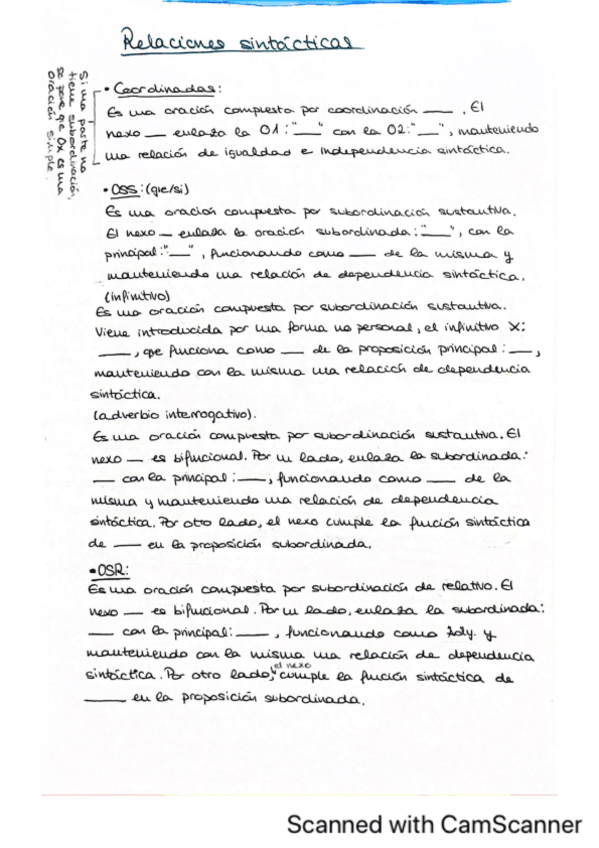 Relaciones sintácticas
Si una parte no
tiene subordinación,
se pone que Ox es una
oración simple.
• Coordinadas:
Es una oración compuesta por coordinación ___. El
nexo __ enlaza la O1: "___" con la O2: "__", manteniendo
una relación de igualdad e independencia sintáctica.
• OSS: (que/si)
Es una oración compuesta por subordinación sustantiva.
El nexo __ enlaza la oración subordinada: "___", con la
principal: "__", funcionando como ___ de la misma y
manteniendo una relación de dependencia sintáctica.
(infinitivo)
Es una oración compuesta por subordinación sustantiva.
Viene introducida por una forma no personal, el infinitivo X:
___, que funciona como __ de la proposición principal: __,
manteniendo con la misma una relación de dependencia
sintáctica.
(adverbio interrogativo).
Es una oración compuesta por subordinación sustantiva. El
nexo __ es bifuncional. Por un lado, enlaza la subordinada:
__ con la principal: ___, funcionando como ___ de la
misma y manteniendo una relación de dependencia
sintáctica. Por otro lado, el nexo cumple la función sintáctica
de ___ en la proposición subordinada.
• OSR:
Es una oración compuesta por subordinación de relativo. El
nexo __ es bifuncional. Por un lado, enlaza la subordinada:
__ con la principal: ___, funcionando como Ady. y
manteniendo con la misma una relación de dependencia
sintáctica. Por otro lado, el nexo cumple la función sintáctica de
____ en la proposición subordinada.
Scanned with CamScanner